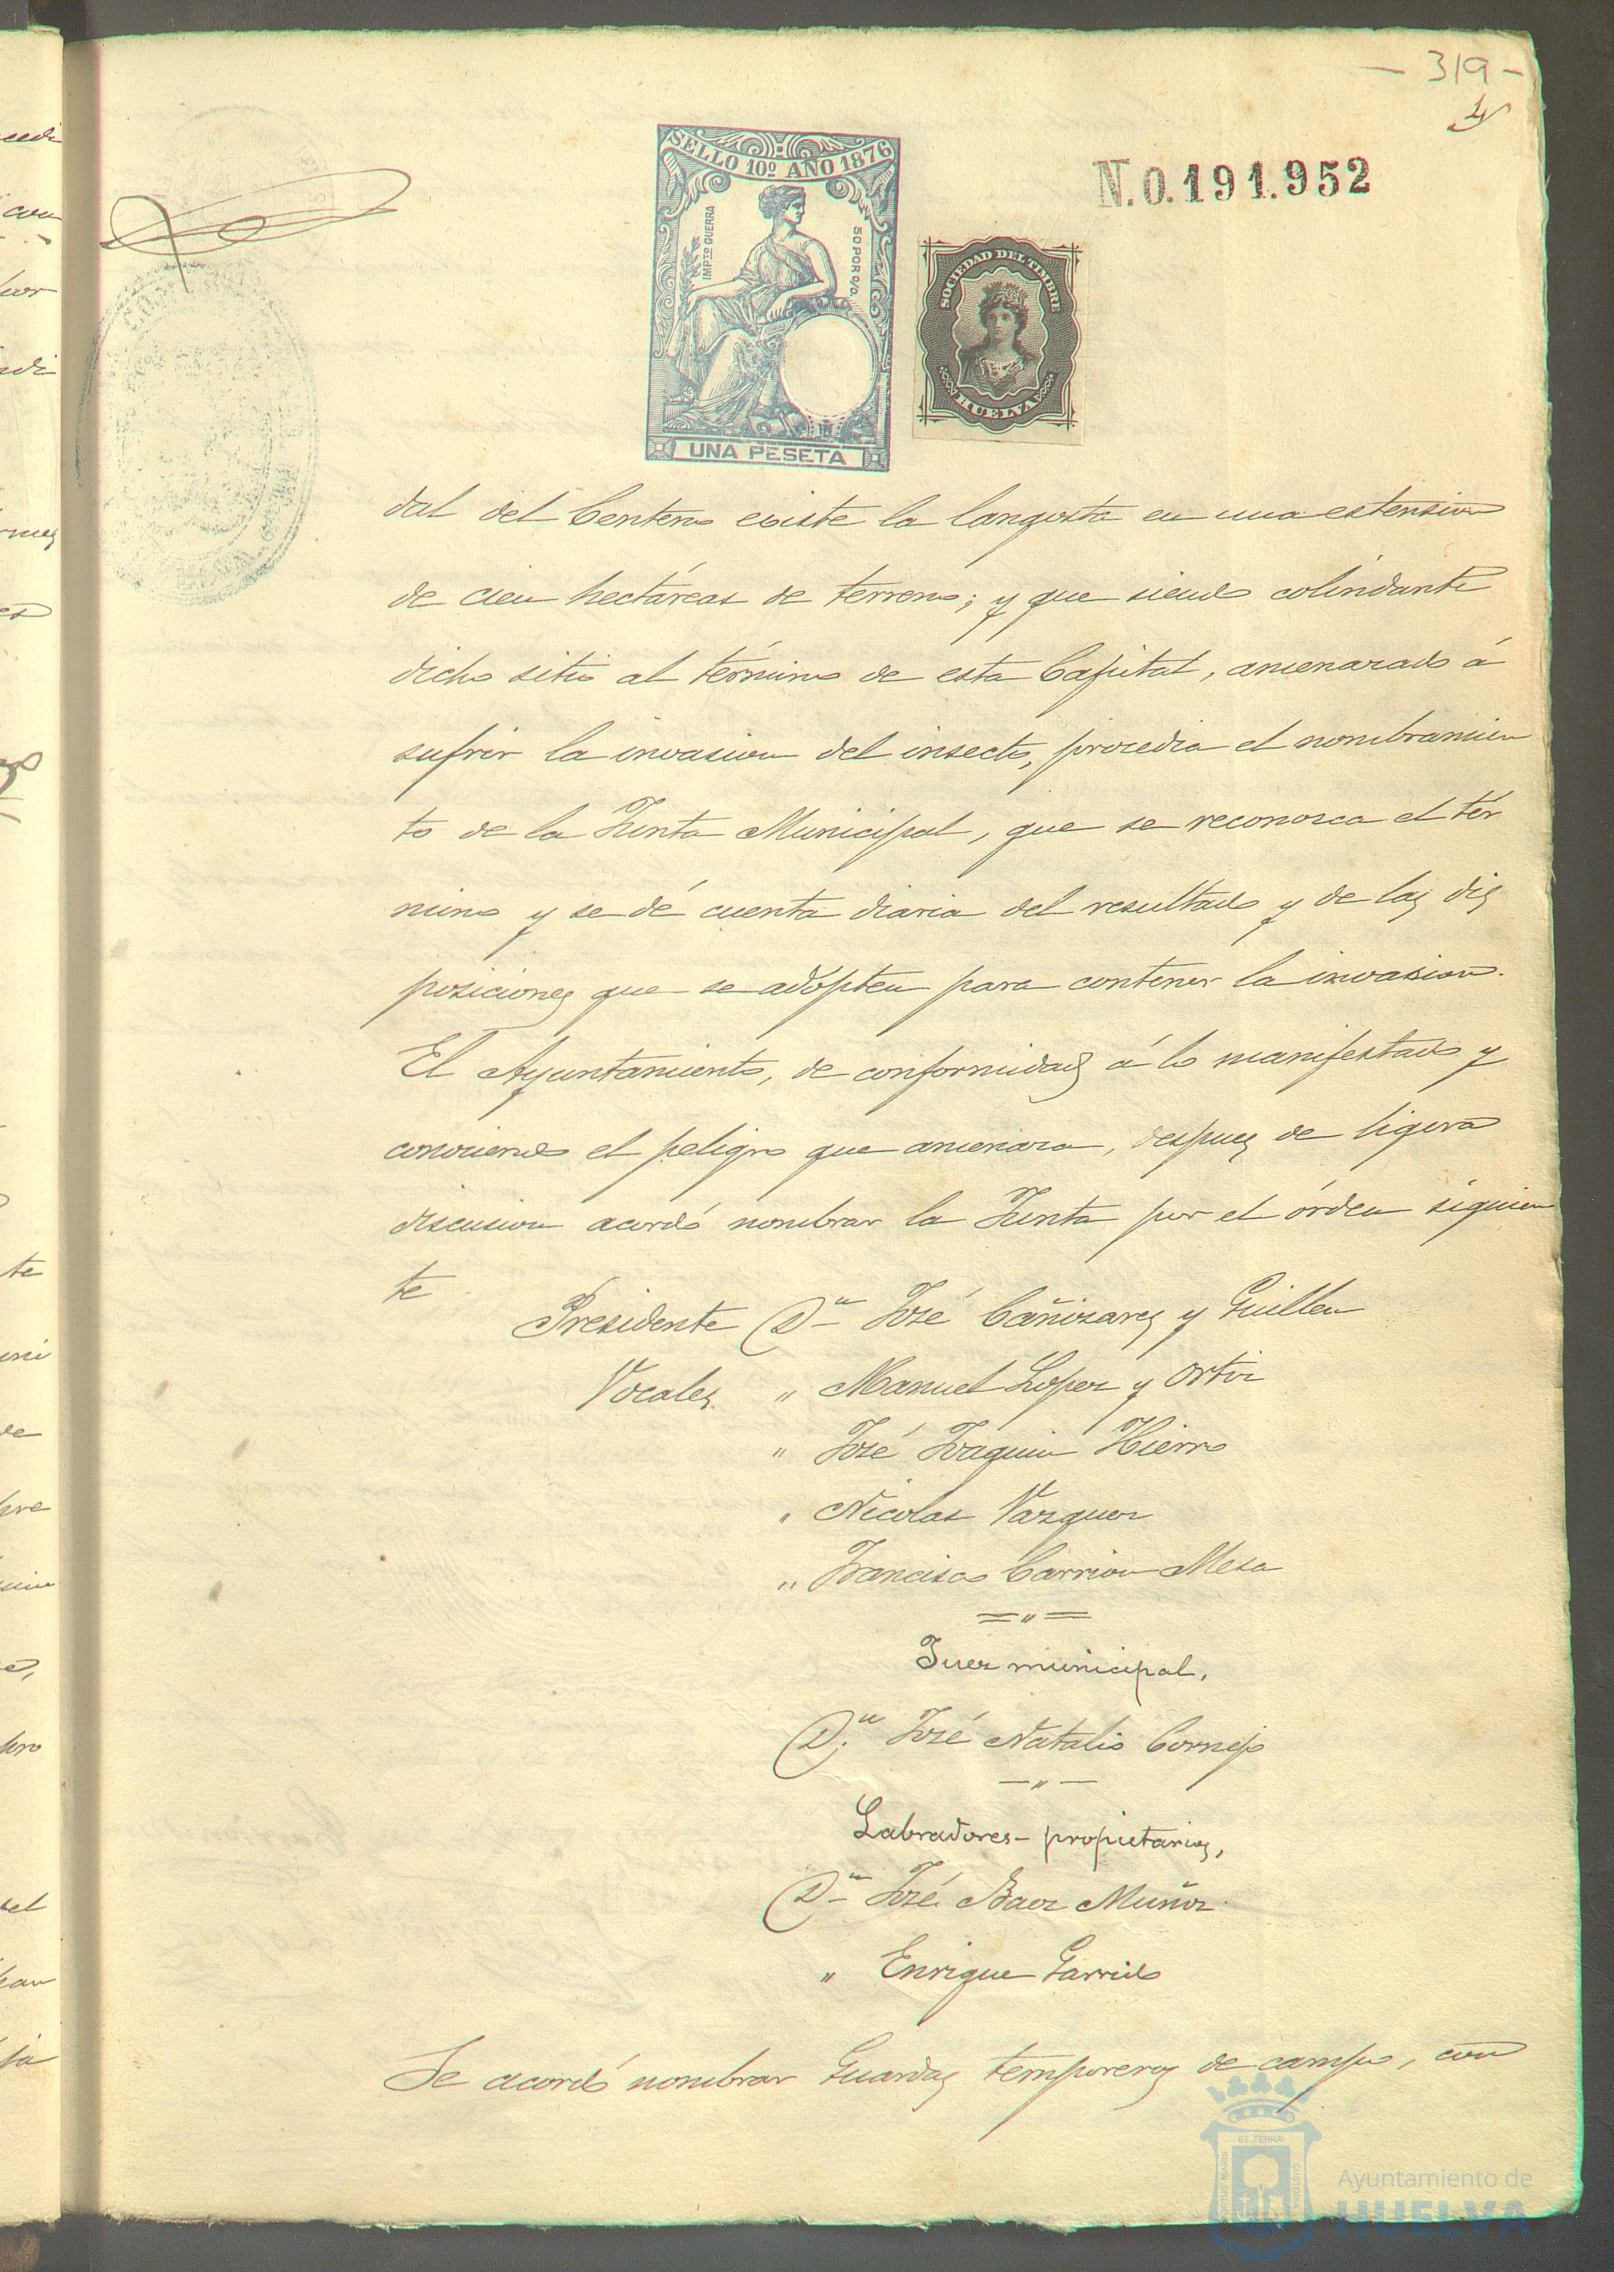 - 319 -
SELLO 10º AÑO 1876
IMPTO GUERRA
50 POR 0/0.
UNA PESETA
SOCIEDAD DEL TIMBRE
HUELVA
N.0.191.952
dal del Centeno existe la langosta en una estension
de cien hectáreas de terreno; y que siendo colindante
dicho sitio al término de esta Capital, amenazado á
sufrir la invasion del insecto, procedia el nombramien
to de la Junta Municipal, que se reconozca el tér
mino y se dé cuenta diaria del resultado y de las dis
posiciones que se adopten para contener la invasion.
El Ayuntamiento, de conformidad á lo manifestado y
conociendo el peligro que amenaza, despues de ligera
discusion acordó nombrar la Junta por el órden siguien
te
Presidente Dn José Cañizares y Guillen
Vocales " Manuel Lopez y Ortiz
" José Joaquin Hierro
" Nicolas Vazquez
" Francisco Carrion Mesa
Juez municipal,
Dn José Natalio Cornejo
Labradores-propietarios,
Dn José Baez Muñoz
" Enrique Garrido
Se acordó nombrar Guardas temporeros de campo, con
Ayuntamiento de
HUELVA